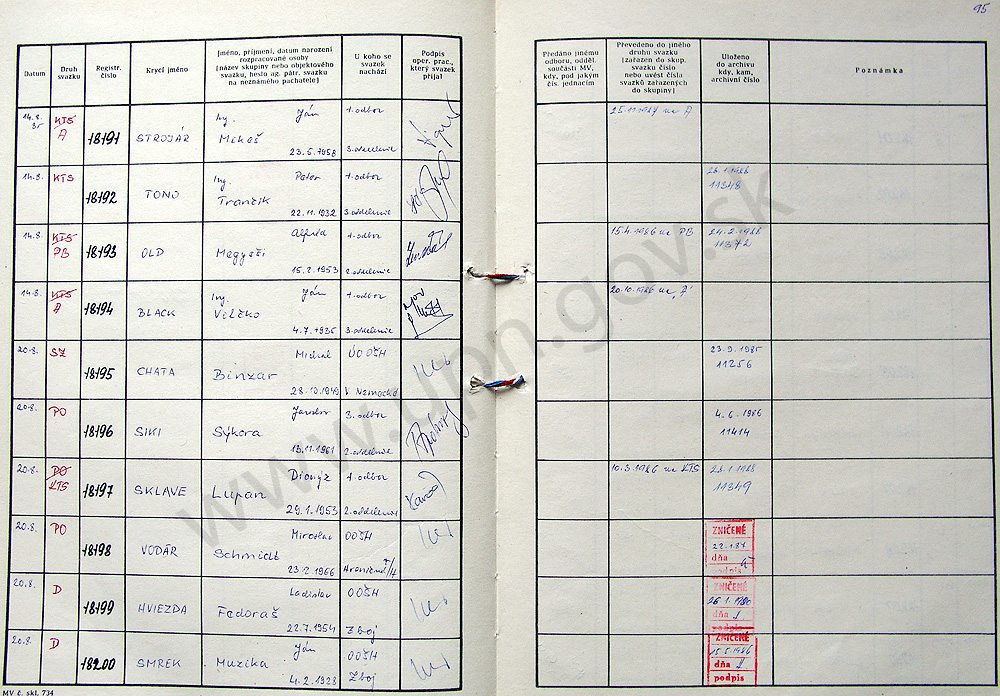 95
Datum
Druh svazku
Registr. číslo
Krycí jméno
Jméno, příjmení, datum narození
rozpracované osoby
(název skupiny nebo objektového
svazku, heslo ag. pátr. svazku
na neznámého pachatele)
U koho se
svazek
nachází
Podpis
oper. prac.,
který svazek
přijal
Předáno jinému
odboru, odděl.
součásti MV,
kdy, pod jakým
čís. jednacím
Převedeno do jiného
druhu svazku
(zařazen do skup.
svazku číslo
nebo uvést čísla
svazků zařazených
do skupiny)
Uloženo
do archivu
kdy, kam,
archivní číslo
Poznámka
14.8. 85 KTS Ing. Ján 1. odbor 25.11.1987 na A
A 18191 STROJÁR Mikeš
23.5.1958 3. oddelenie
14.8. KTS Ing. Peter 1. odbor 28.1.1988
18192 TONO Trančík 11348
22.11.1932 3. oddelenie
14.8. KTS Alfréd 1. odbor 15.4.1986 na PB 24.2.1988
PB 18193 OLD Megyeši 11372
15.2.1953 2. oddelenie
14.8. KTS Ing. Ján 1. odbor 20.10.1986 na "A"
A 18194 BLACK Velčko
4.7.1935 3. oddelenie
20.8. SZ Michal ÚOOŠH 23.9.1985
18195 CHATA Binzar 11256
28.10.1949 V. Nemecké
20.8. PO Jaroslav 3. odbor 4.6.1986
18196 SIKI Sýkora 11414
13.11.1961 2. oddelenie
20.8. PO Dionýz 1. odbor 10.3.1986 na KTS 28.1.1988
KTS 18197 SKLAVE Lupan 11349
29.1.1953 2. oddelenie
20.8. PO Miroslav OOŠH ZNIČENÉ
18198 VODÁR Schmidt 22.1.87
23.2.1966 dňa
podpis
20.8. D Ladislav OOŠH ZNIČENÉ
18199 HVIEZDA Fedoraš
22.7.1954 Zboj dňa
podpis
20.8. D Ján OOŠH ZNIČENÉ
18200 SMREK Muzika 15.5.1986
4.2.1928 Zboj dňa
podpis
MV č. skl. 734
www.upn.gov.sk